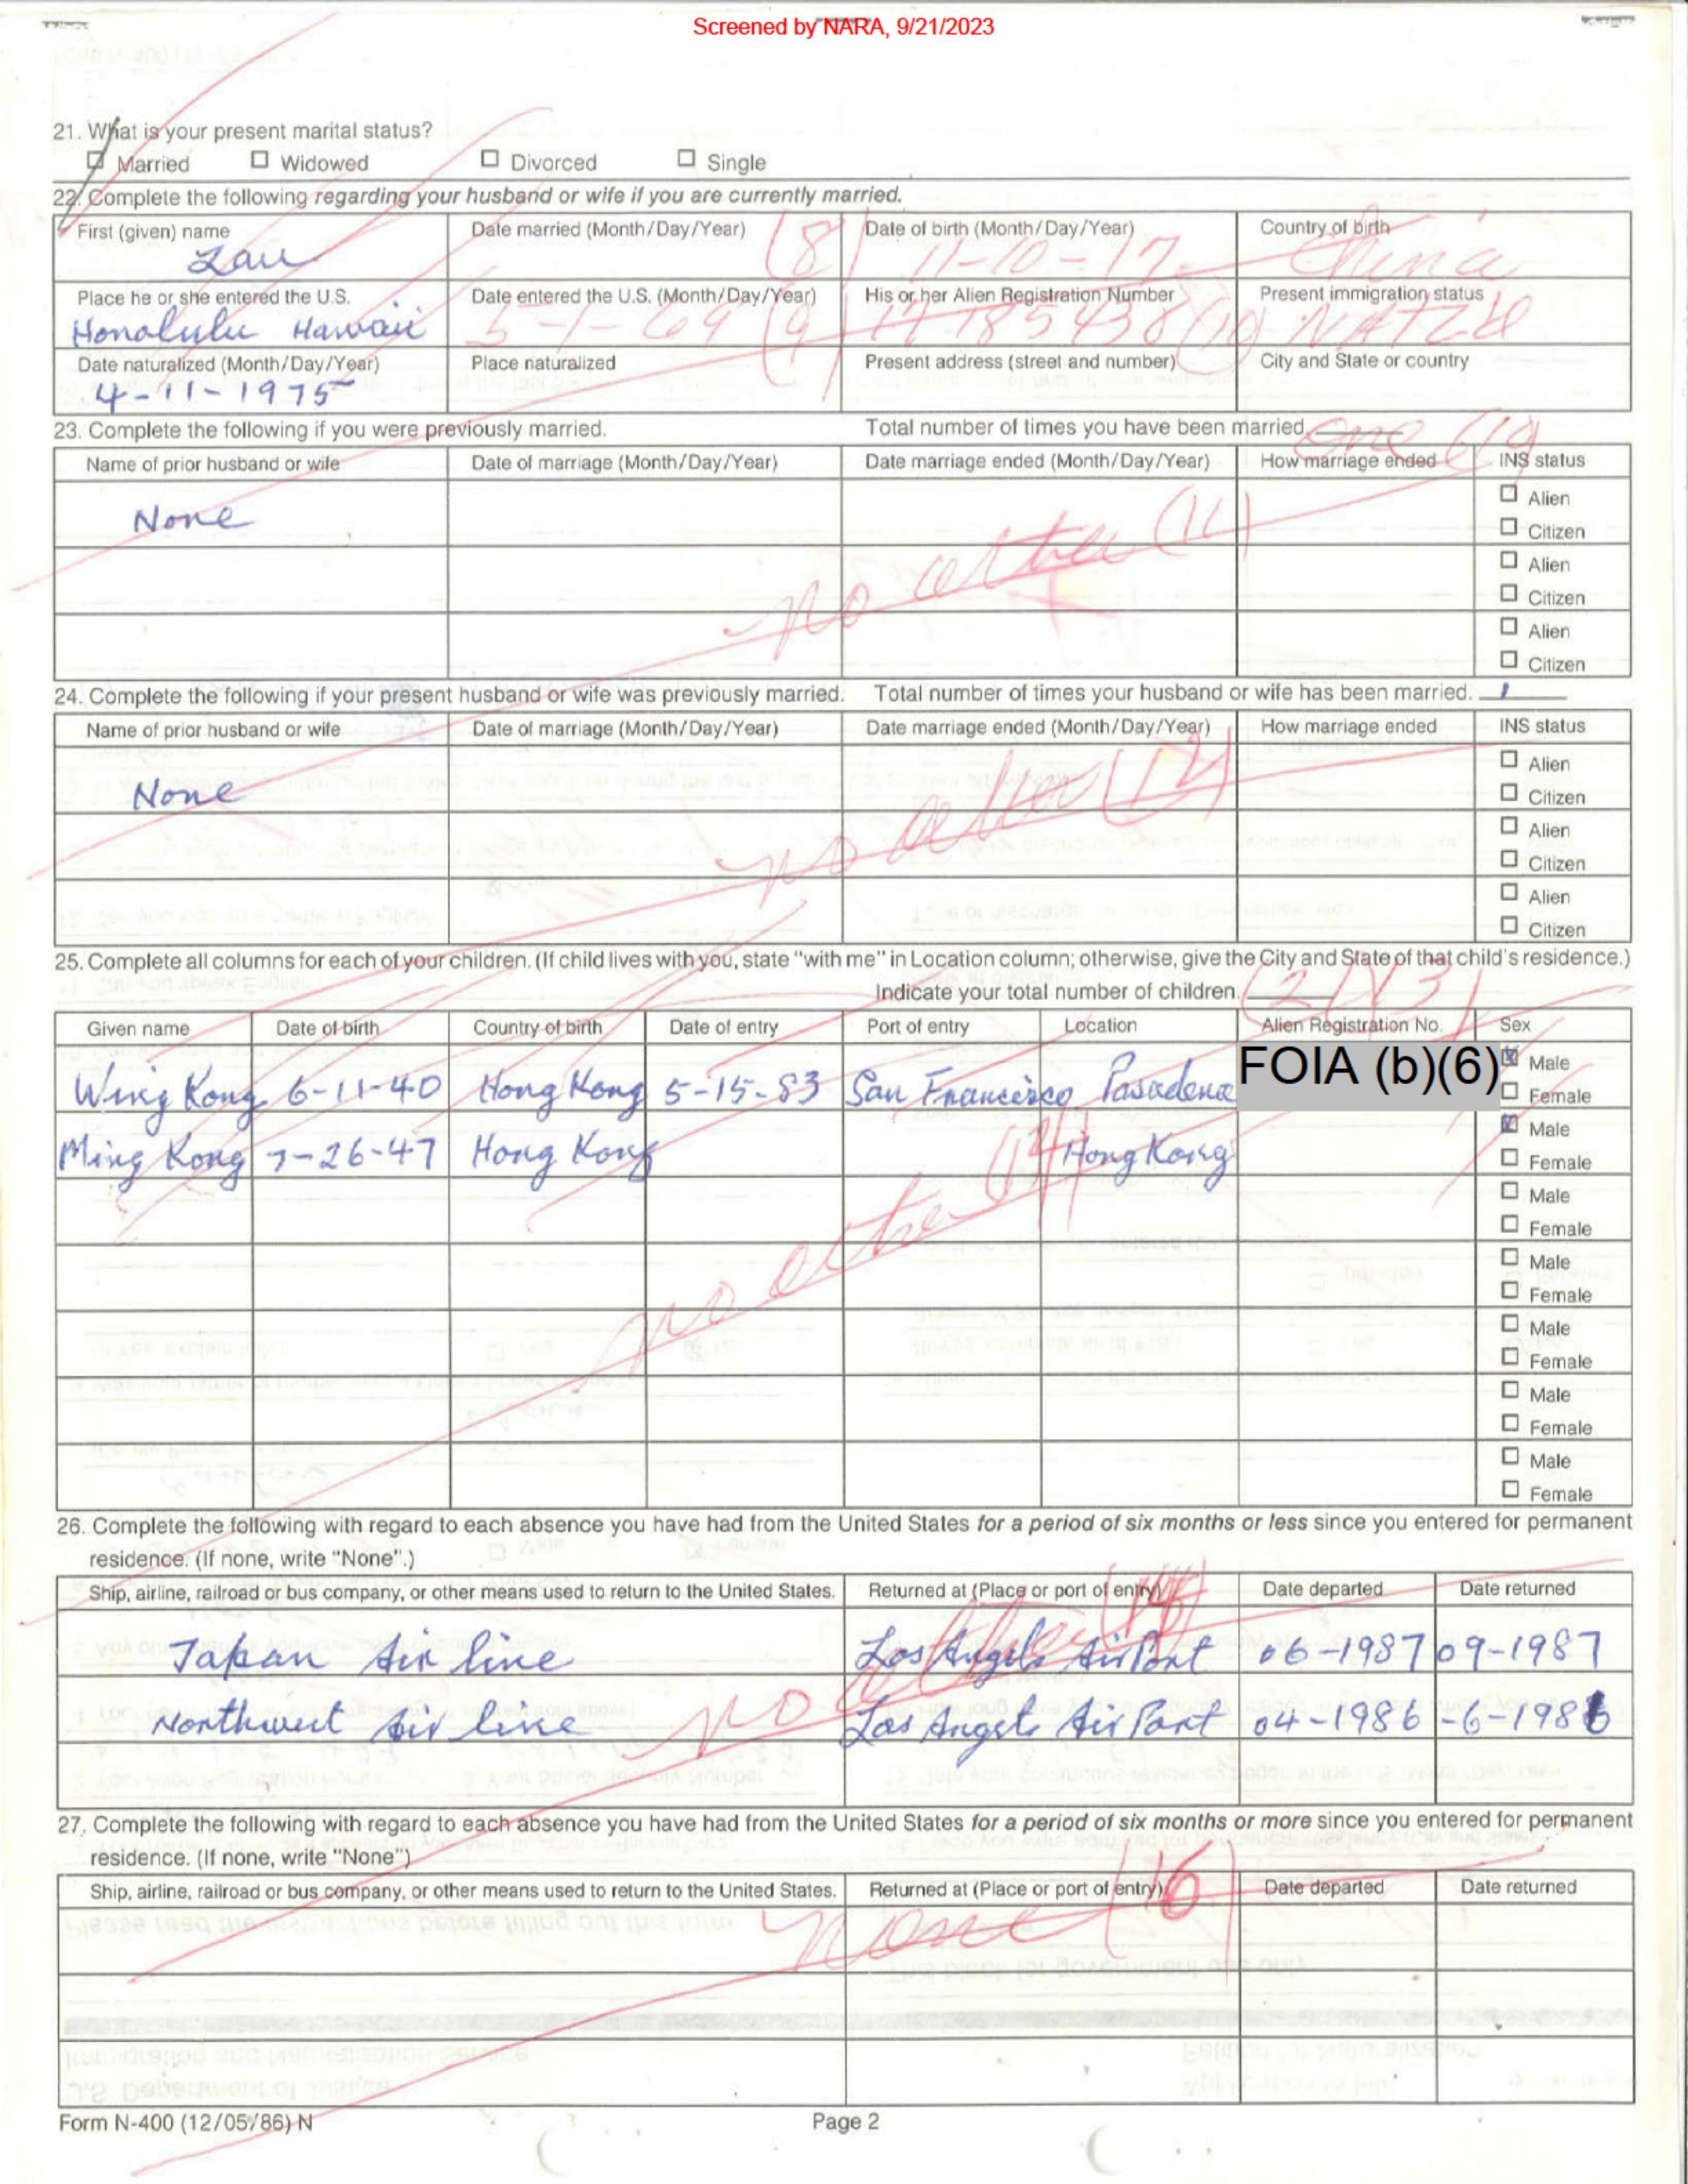 Screened by NARA, 9/21/2023
21. What is your present marital status?
Married Widowed Divorced Single
22. Complete the following regarding your husband or wife if you are currently married.
First (given) name Date married (Month/Day/Year) Date of birth (Month/Day/Year) Country of birth
Lau (8) 11-10-17 China
Place he or she entered the U.S. Date entered the U.S. (Month/Day/Year) His or her Alien Registration Number Present immigration status
Honolulu Hawaii 5-1-69 (9) (10) NATZD
Date naturalized (Month/Day/Year) Place naturalized Present address (street and number) City and State or country
4-11-1975
23. Complete the following if you were previously married. Total number of times you have been married. one
Name of prior husband or wife Date of marriage (Month/Day/Year) Date marriage ended (Month/Day/Year) How marriage ended INS status
Alien
None no other (11) Citizen
Alien
Citizen
Alien
Citizen
24. Complete the following if your present husband or wife was previously married. Total number of times your husband or wife has been married. 1
Name of prior husband or wife Date of marriage (Month/Day/Year) Date marriage ended (Month/Day/Year) How marriage ended INS status
Alien
None no other (12) Citizen
Alien
Citizen
Alien
Citizen
25. Complete all columns for each of your children. (If child lives with you, state "with me" in Location column; otherwise, give the City and State of that child's residence.)
Indicate your total number of children. (2) (13)
Given name Date of birth Country of birth Date of entry Port of entry Location Alien Registration No. Sex
Wing Kong 6-11-40 Hong Kong 5-15-83 San Francisco Pasadena FOIA (b)(6) Male
Female
Ming Kong 7-26-47 Hong Kong Hong Kong Male
Female
no other (14)
Male
Female
Male
Female
Male
Female
Male
Female
Male
Female
26. Complete the following with regard to each absence you have had from the United States for a period of six months or less since you entered for permanent
residence. (If none, write "None".)
Ship, airline, railroad or bus company, or other means used to return to the United States. Returned at (Place or port of entry) Date departed Date returned
Japan Air line Los Angels AirPort 06-1987 09-1987
Northwest Air line Los Angels AirPort 04-1986 -6-1986
no other (15)
27. Complete the following with regard to each absence you have had from the United States for a period of six months or more since you entered for permanent
residence. (If none, write "None")
Ship, airline, railroad or bus company, or other means used to return to the United States. Returned at (Place or port of entry) Date departed Date returned
None (16)
Form N-400 (12/05/86) N Page 2